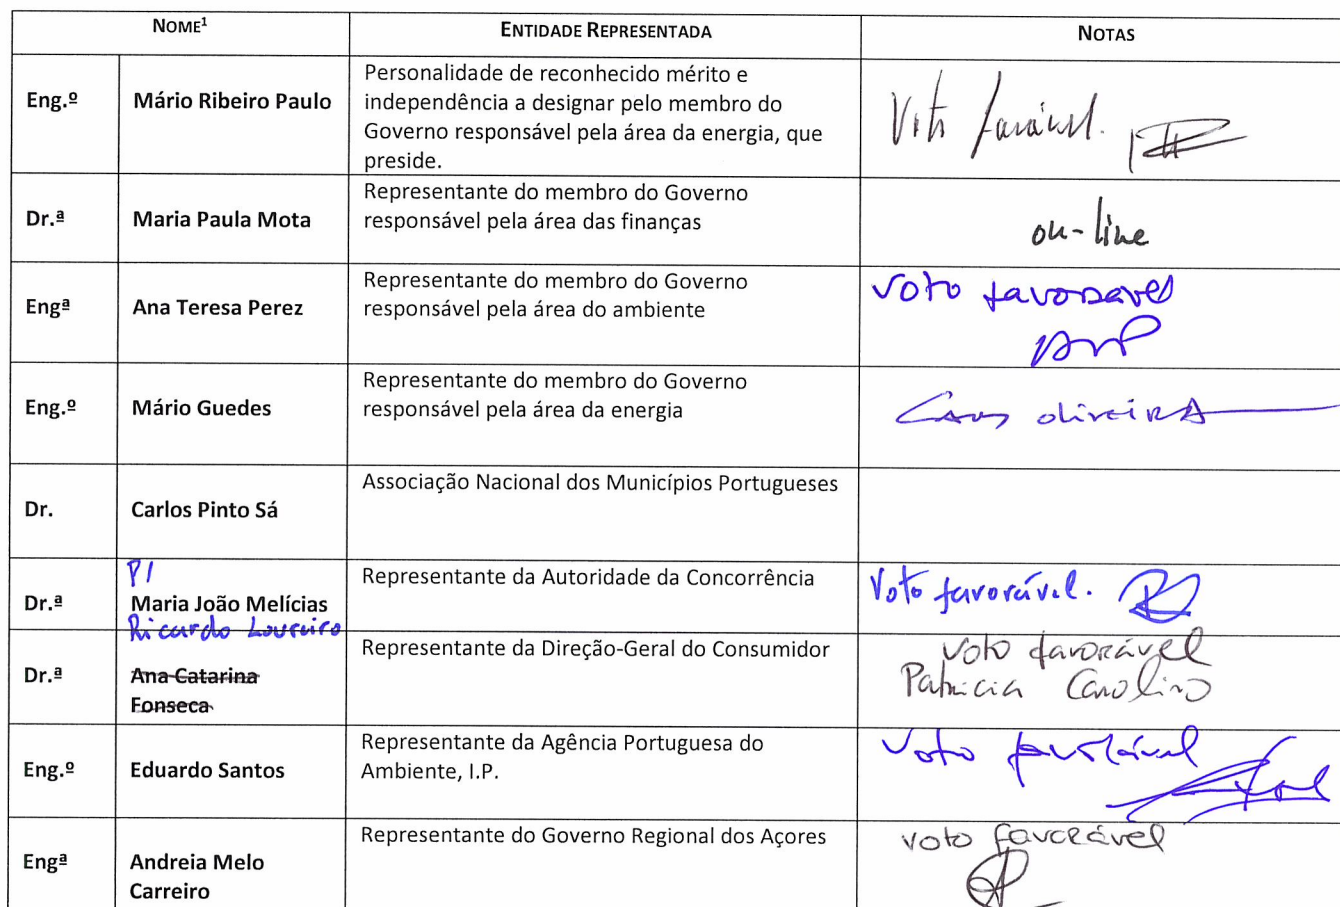 NOME¹ ENTIDADE REPRESENTADA NOTAS
Eng.º Mário Ribeiro Paulo
Personalidade de reconhecido mérito e
independência a designar pelo membro do
Governo responsável pela área da energia, que
preside.
Voto favorável.
Dr.ª Maria Paula Mota
Representante do membro do Governo
responsável pela área das finanças
on-line
Engª Ana Teresa Perez
Representante do membro do Governo
responsável pela área do ambiente
Voto favoravel
Eng.º Mário Guedes
Representante do membro do Governo
responsável pela área da energia
oliveira
Dr. Carlos Pinto Sá
Associação Nacional dos Municípios Portugueses
P/
Dr.ª Maria João Melícias
Ricardo Loureiro
Representante da Autoridade da Concorrência
Voto favorável.
Dr.ª Ana Catarina
Fonseca
Representante da Direção-Geral do Consumidor
Voto favorável
Patrícia Carolino
Eng.º Eduardo Santos
Representante da Agência Portuguesa do
Ambiente, I.P.
Voto favorável
Engª Andreia Melo
Carreiro
Representante do Governo Regional dos Açores
voto favorável